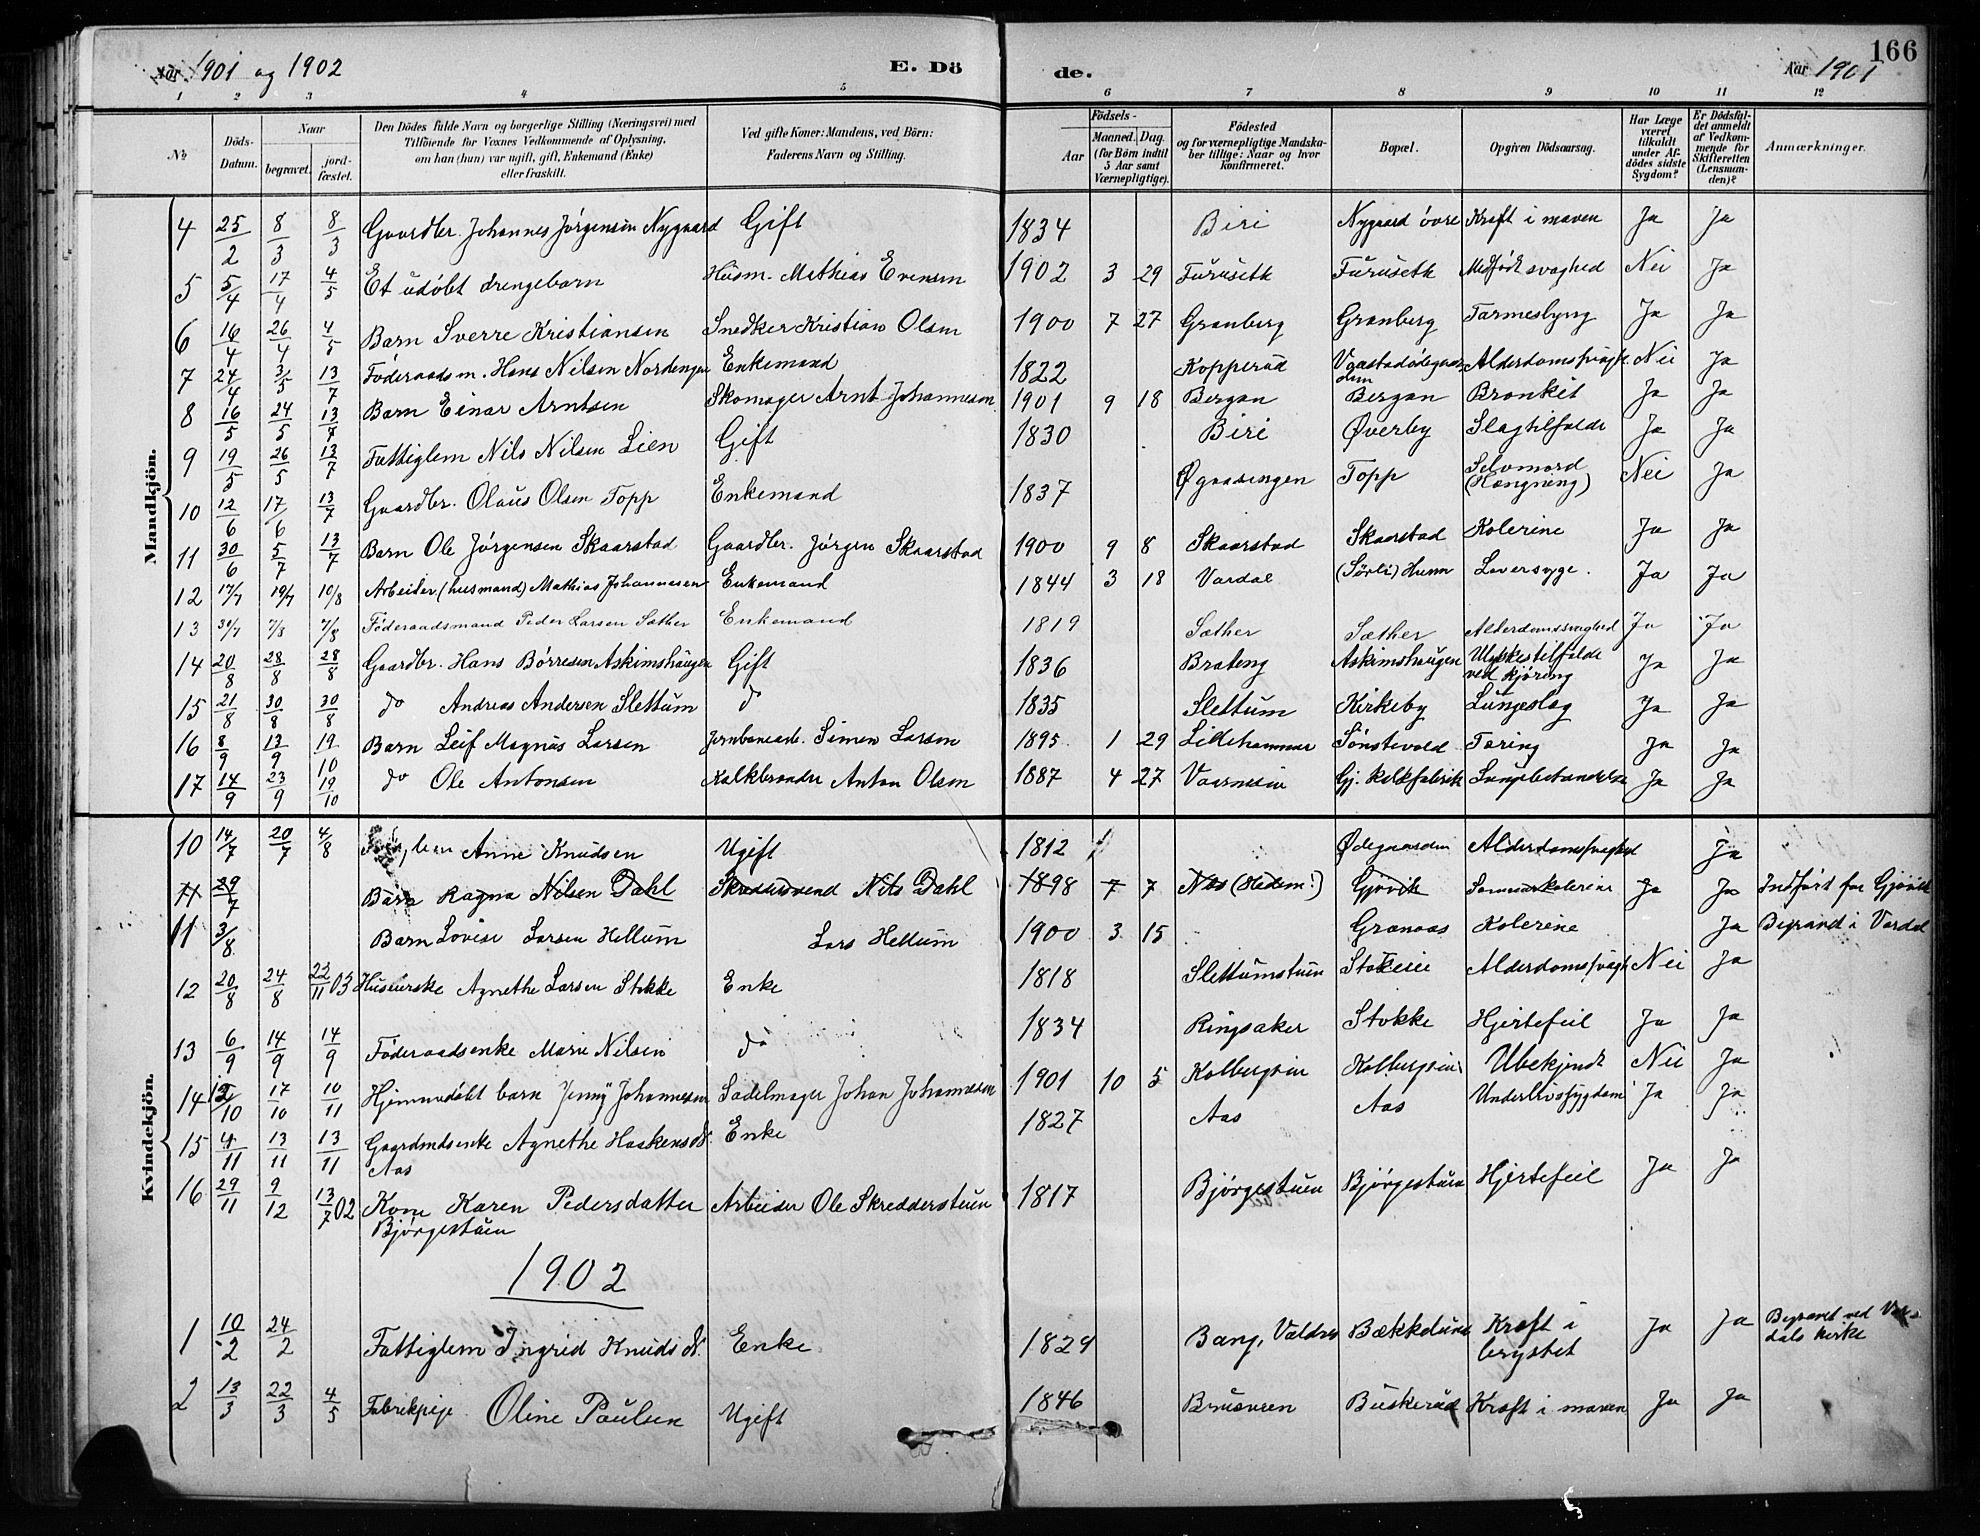 Aar 1901 og 1902 E. Dö de. Aar 1901 166
1 2 3 4 5 6 7 8 9 10 11 12
No. Döds-Datum. Naar begravet. jord-fæstet. Den Dödes fulde Navn og borgerlige Stilling (Næringsvei) med Tilföiende for Voxnes Vedkommende af Oplysning, om han (hun) var ugift, gift, Enkemand (Enke) eller fraskilt. Ved gifte Koner: Mandens, ved Börn: Faderens Navn og Stilling. Födsels- Aar Maaned. Dag. (for Börn indtil 5 Aar samt Værnepligtige). Födested og for værnepligtige Mandskaber tillige: Naar og hvor konfirmeret. Bopæl. Opgiven Dödsaarsag. Har Læge været tilkaldt under Afdödes sidste Sygdom? Er Dödsfaldet anmeldt af Vedkommende for Skifteretten (Lensmanden)? Anmærkninger.
Mandkjön.
4 25/2 8/3 8/3 Gaardbr. Johannes Jørgensen Nygaard Gift 1834 Biri Nygaard övre Kræft i maven Ja Ja
5 5/4 17/4 4/5 Et udöbt drengebarn Husm. Mathias Evensen 1902 3 29 Furuseth Furuseth Medfödt svaghed Nei Ja
6 16/4 26/4 4/5 Barn Sverre Kristiansen Snedker Kristian Olsen 1900 7 27 Granberg Granberg Tarmeslyng Ja Ja
7 24/4 3/5 13/7 Föderaadsm. Hans Nilsen Nordengen Enkemand 1822 Kopperud Alderdomssvagh. Nei Ja
8 16/5 24/5 13/7 Barn Einar Arntsen Skomager Arnt Johannesen 1901 9 18 Bergan Bergan Bronkit Ja Ja
9 19/5 26/5 13/7 Fattiglem Nils Nilsen Lien Gift 1830 Biri Øverby Slagtilfælde Ja Ja
10 12/6 17/6 13/7 Gaardbr. Olaus Olsen Topp Enkemand 1837 Øgaasengen Topp Selvmord (Hængning) Nei Ja
11 30/6 5/7 13/7 Barn Ole Jörgensen Skaarstad Gaardbr. Jörgen Skaarstad 1900 9 8 Skaarstad Skaarstad Kolerine Ja Ja
12 17/7 19/7 10/8 Arbeider (husmand) Mathias Johannesen Enkemand 1844 3 18 Vardal (Sörli) Hunn Leversyge. Ja Ja
13 30/7 7/8 7/8 Föderaadsmand Peder Larsen Sæther Enkemand 1819 Sæther Sæther Alderdomssvaghed Ja Ja
14 20/8 28/8 28/8 Gaardbr. Hans Börresen Askimshaugen Gift 1836 Brateng Askimshaugen Ulykkestilfælde ved kjöring Ja Ja
15 21/8 30/8 30/8 do Andreas Andersen Slettum do 1835 Slettum Kirkeby Lungeslag Ja Ja
16 8/9 13/9 19/10 Barn Leif Magnus Larsen Jernbanearb. Simen Larsen 1895 1 29 Lillehammer Sönstevold Tæring Ja Ja
17 14/9 23/9 19/10 do Ole Antonsen Kalkbrænder Anton Olsen 1887 4 27 Gj. kalkfabrik Lungebetændelse Ja Ja
Kvindekjön.
10 14/7 20/7 4/8 Anne Knudsen Ugift 1812 Ødegaarden Alderdomssvaghed Ja
11 29/7 Barn Ragna Nilsen Dahl Skræddersvend Nils Dahl 1898 7 7 Næs (Hedem.) Gjövik Sommerkolerine Ja Ja Indfört for Gjövik
11 3/8 Barn Lovise Larsen Hellum Lars Hellum 1900 3 15 Granaas Kolerine Ja Begravet i Vardal
12 20/8 24/8 22/11 03 Agnethe Larsen Stokke Enke 1818 Slettumstuen Alderdomssvagh. Nei Ja
13 6/9 14/9 14/9 Föderaadsenke Marie Nilsen do 1834 Ringsaker Stokke Hjertefeil Ja Ja
14 /10 17/10 10/11 Hjemmedöbt barn Jenny Johannesen Sadelmager Johan Johannesen 1901 10 5 Kolbergsen Kolbergsen Ubekjendt Nei Ja
15 4/11 13/11 13/11 Gaardmdsenke Agnethe Haakensdtr. Aas Enke 1827 Aas Aas Underlivssygdom Ja Ja
16 29/11 9/12 13/7 02 Kone Karen Pedersdatter Bjørgestuen Arbeider Ole Skredderstuen 1817 Bjørgestuen Bjørgestuen Hjertefeil Ja Ja
1902
1 10/2 24/2 Fattiglem Ingrid Knudsdtr. Enke 1829 Bang, Valdres Bækkelund Kræft i brystet Ja Ja Begravet ved Vardals kirke
2 13/3 22/3 4/5 Fabrikpige Oline Paulsen Ugift 1846 Brusveen Buskerud Kræft i maven Ja Ja